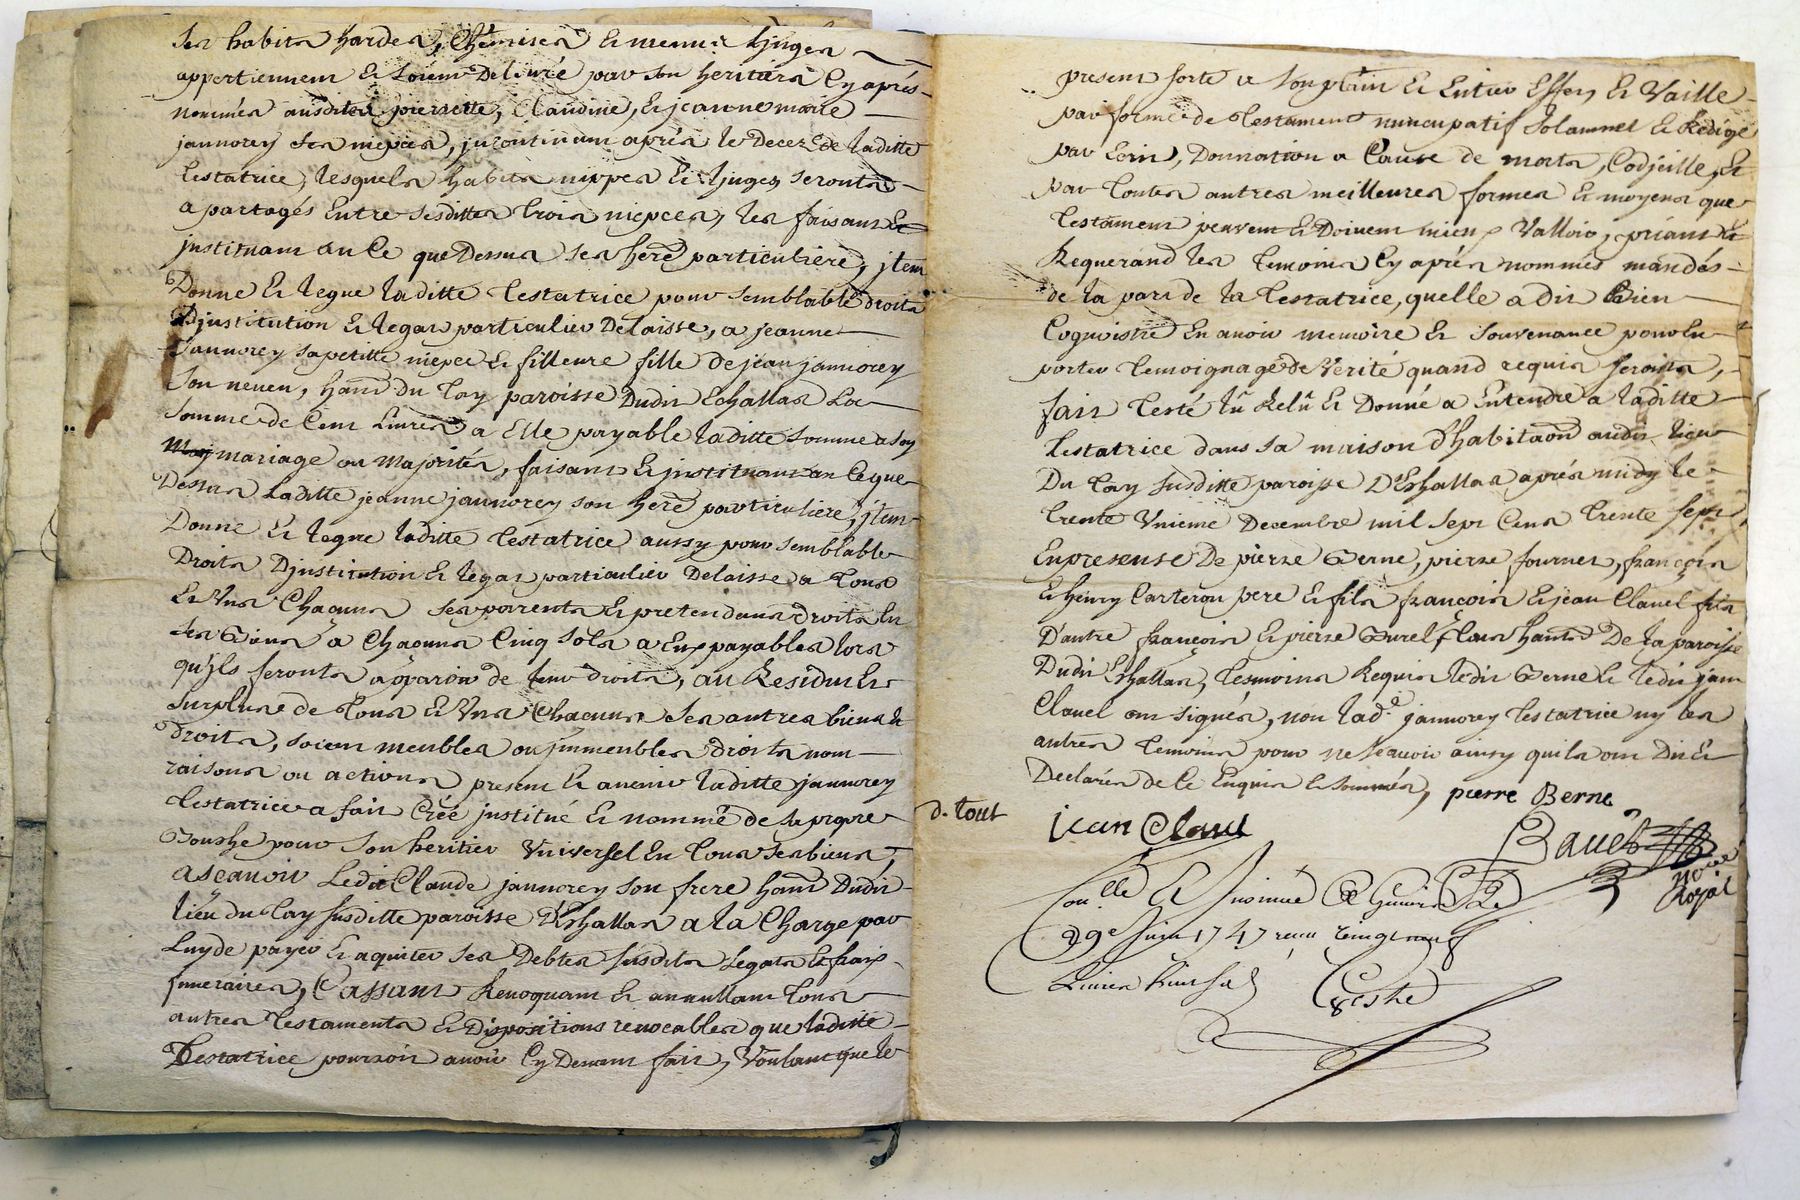 ses habits hardes, Chemises et menus linges
appertiennent et soient Delivré par son heritiers Cy aprés
nommés ausdites pierrette, Claudine, et jeanne marie
jannorey ses niepces, incontinent aprés le Decez de laditte
testatrice, lesquels habits nippes et linges seronts
a partagés Entre sesdittes trois niepces, les faisant Et
instituant en Ce que Dessus ses here particuliere, item
Donne et legue laditte testatrice pour semblable droits
Djnstitution et legat particulier Delaisse, a jeanne
jannorey sa petitte niepce et filleure fille de jean jannorey
son neveu, hant du Cay paroisse Dudit Echallas La
somme de Cent Livres a Elle payable laditte somme a son
mariage ou Majorités, faisant et instituant en Ce que
Dessus Laditte jeanne jannorey son here particuliere, item
Donne et legue laditte testatrice aussy pour semblable
Droits Djnstitution et legat particulier Delaisse a tous
et Uns Chacuns ses parents et pretendans droits En
ses Biens a Chacuns Cinq sols a Eux payables lors
qu'ils feronts apparoir de leur droits, au Residu Et
surplus de tous et Uns Chacuns ses autres biens et
droits, soient meubles ou jmmeubles droits nom
raisons ou actions present et avenir laditte jannorey
testatrice a fait Créé institué et nommé de sa propre
Bouche pour son heritier Universel En tous ses biens,
ascavoir Ledit Claude jannorey son frere hant Dudit
lieu du Cay susditte paroisse D'Eshallas a la Charge par
Luy de payer et aquiter ses Debtes susdits Legats et frais
funeraires, Cassant Revoquant et annullant tous
autres testaments et dispositions revocables que laditte
testatrice pourroit avoir Cy Devant fait, Voulant que le
present sorte a son plein et Entier Effet, et Vaille
par forme de testament nuncupatif solannel et Redigé
par Ecrit, Donnation a Cause de morts, Codjcille, Et
par toutes autres meilleures formes et moyens que
testament peuvent et Doivent mieux Valloir, priant Et
Requerand les temoins Cy aprés nommés mandés
de la part de la testatrice, quelle a dit bien
Cognoistre En avoir memoire et souvenance pour En
porter temoignage de Verité quand requis seronts,
fait testé lû Relû et Donné a Entendre a laditte
testatrice dans sa maison d'habitaon audit lieu
Du Cay susditte paroisse D'Eshallas aprés midy le
trente Unieme Decembre mil sept Cens trente sept
En presense De pierre Berne, pierre fournet, françois
Et henry Carteron pere et fils françois et jean Clavel fils
D'autre françois et pierre Burel tous hants De la paroisse
Dudit Eshallas, tesmoins Requis ledit Berne et ledit jean
Clavel ont signés, non lade jannorey testatrice ny les
autres temoins pour ne scavoir ainsy quils ont Dit et
Declarés de Ce Enquis et sommés, pierre Berne
d. tout
jean Clavel
re
Royal
Con.lle Et insinué
29e juin 1747 receu vingt neuf